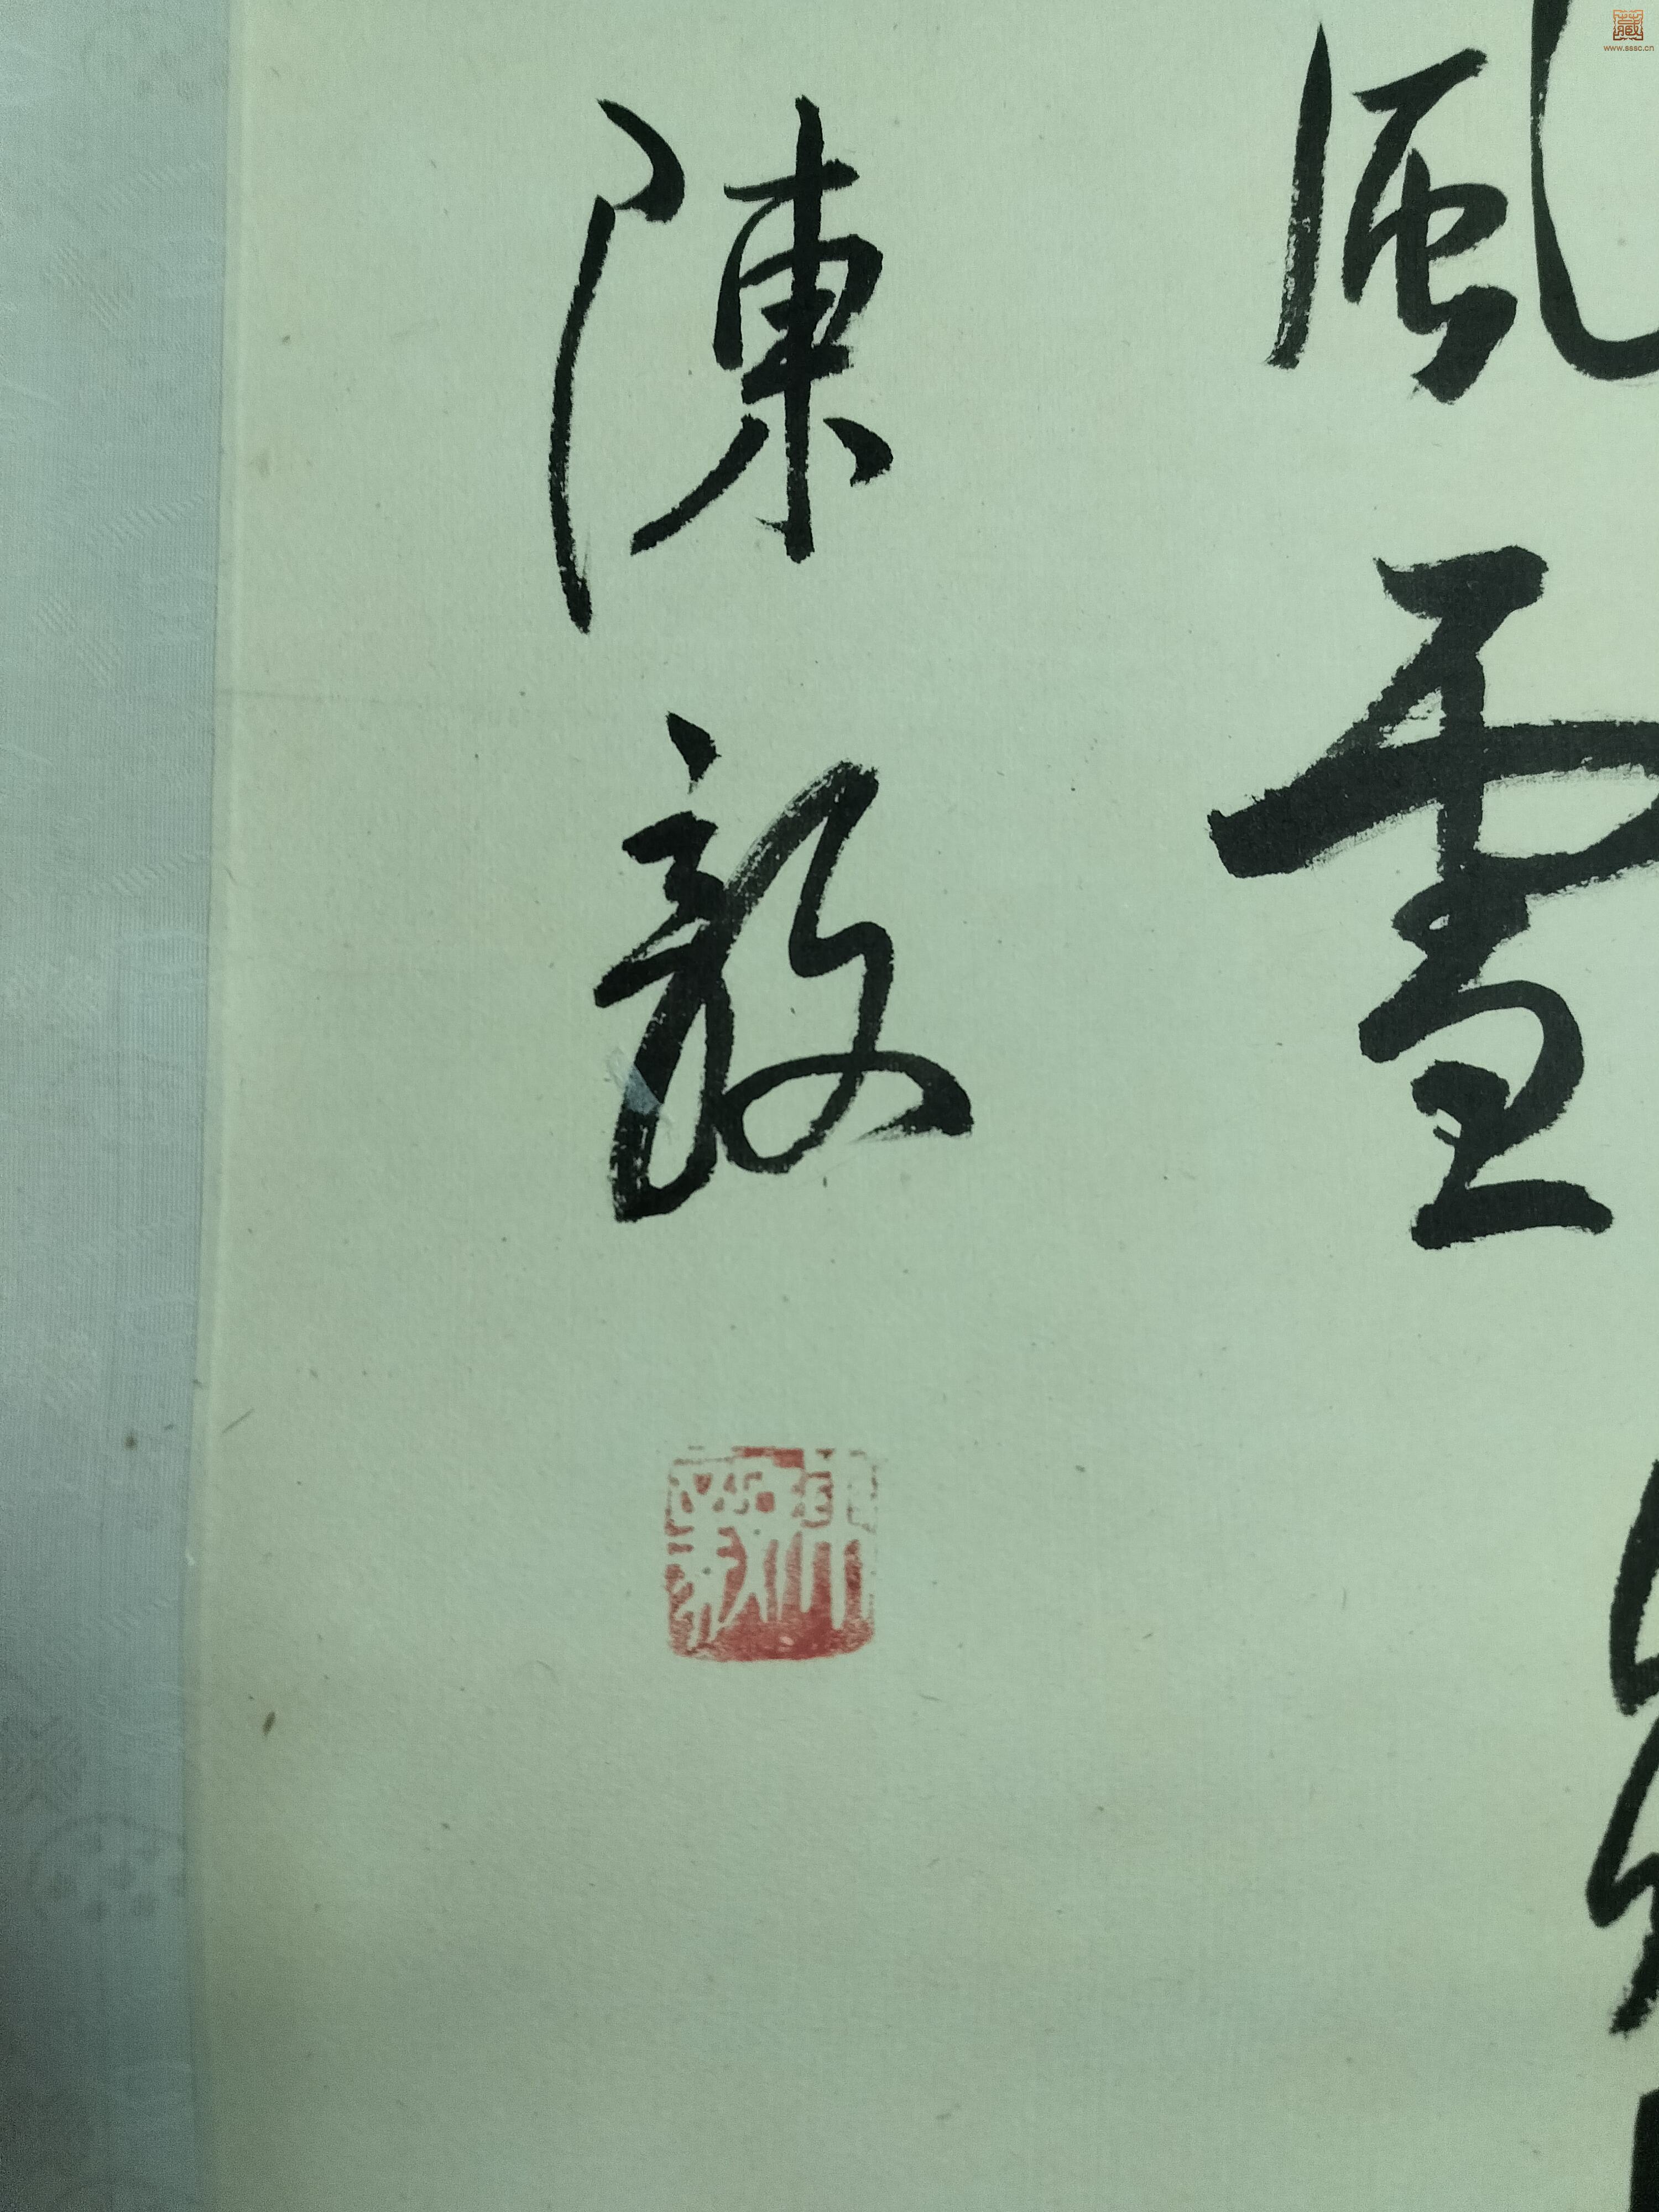 風雪
陳毅
藏
www.sssc.cn